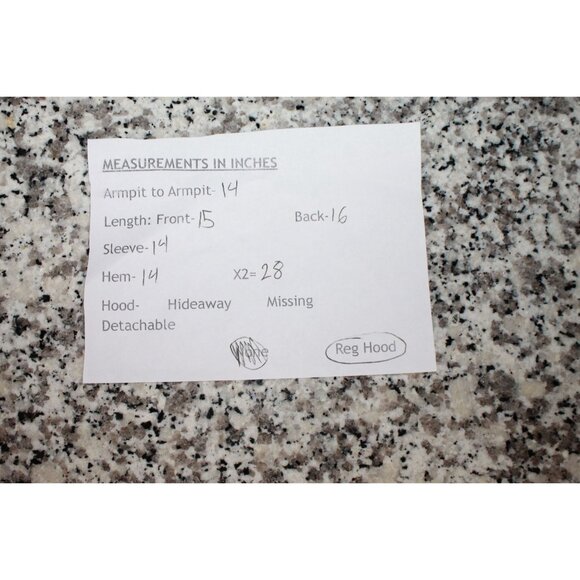 MEASUREMENTS IN INCHES
Armpit to Armpit- 14
Length: Front- 15 Back- 16
Sleeve- 14
Hem- 14 X2= 28
Hood- Hideaway Missing
Detachable
None Reg Hood